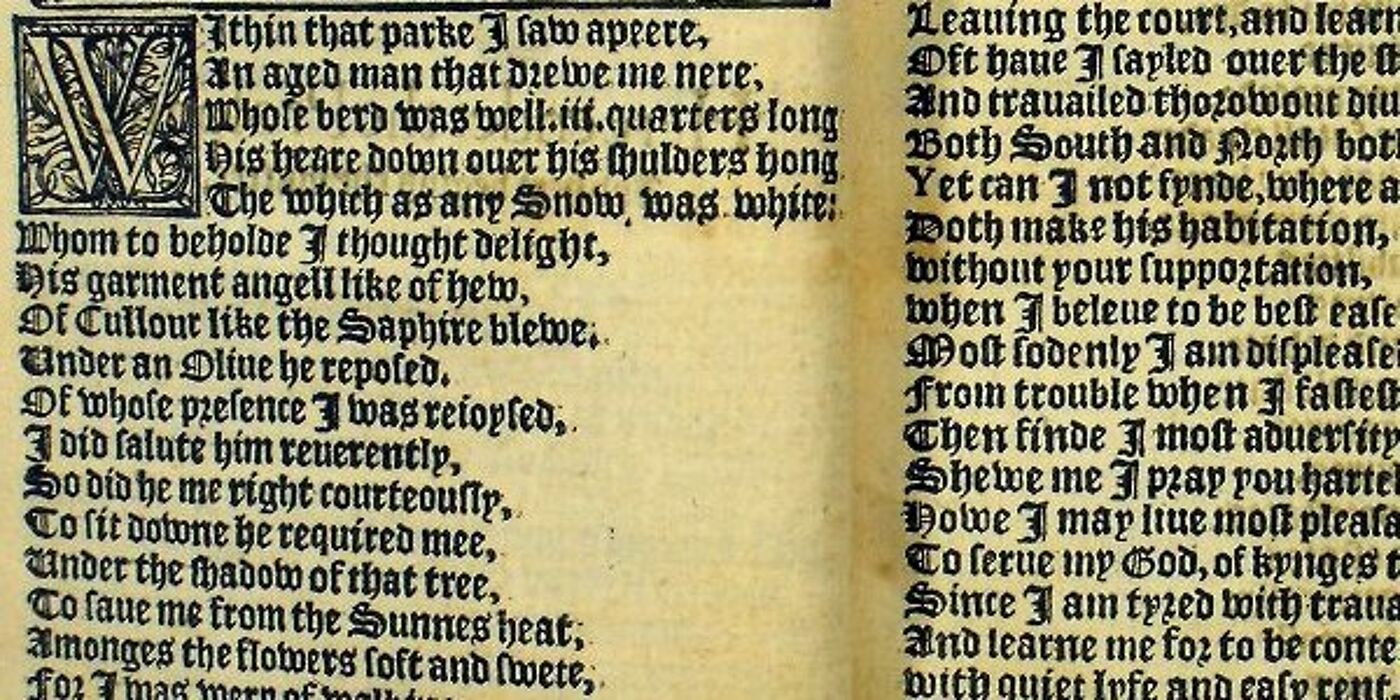 WIthin that parke I saw apeere,
An aged man that drewe me nere,
Whose berd was well.iii.quarters long
His heare down ouer his shulders hong
The which as any Snow, was white:
Whom to beholde I thought delight,
His garment angell like of hew,
Of Cullour like the Saphire blewe.
Under an Oliue he reposed.
Of whose presence I was reioysed,
I did salute him reuerently,
So did he me right courteously,
To sit downe he required mee,
Under the shadow of that tree,
To saue me from the Sunnes heat,
Amonges the flowers soft and swete,
For I was wery of
Leauing the court, and
Oft haue I sayled ouer the
And trauailed thorowout
Both South and North
Yet can I not fynde, where
Doth make his habitation,
without your supportation,
when I beleue to be best
Most sodenly I am
From trouble when I
Then finde I most aduersity
Shewe me I pray you
Howe I may liue most
To serue my God, of kynges
Since I am tyred with
And learne me for to be
with quiet lyfe and easy rent